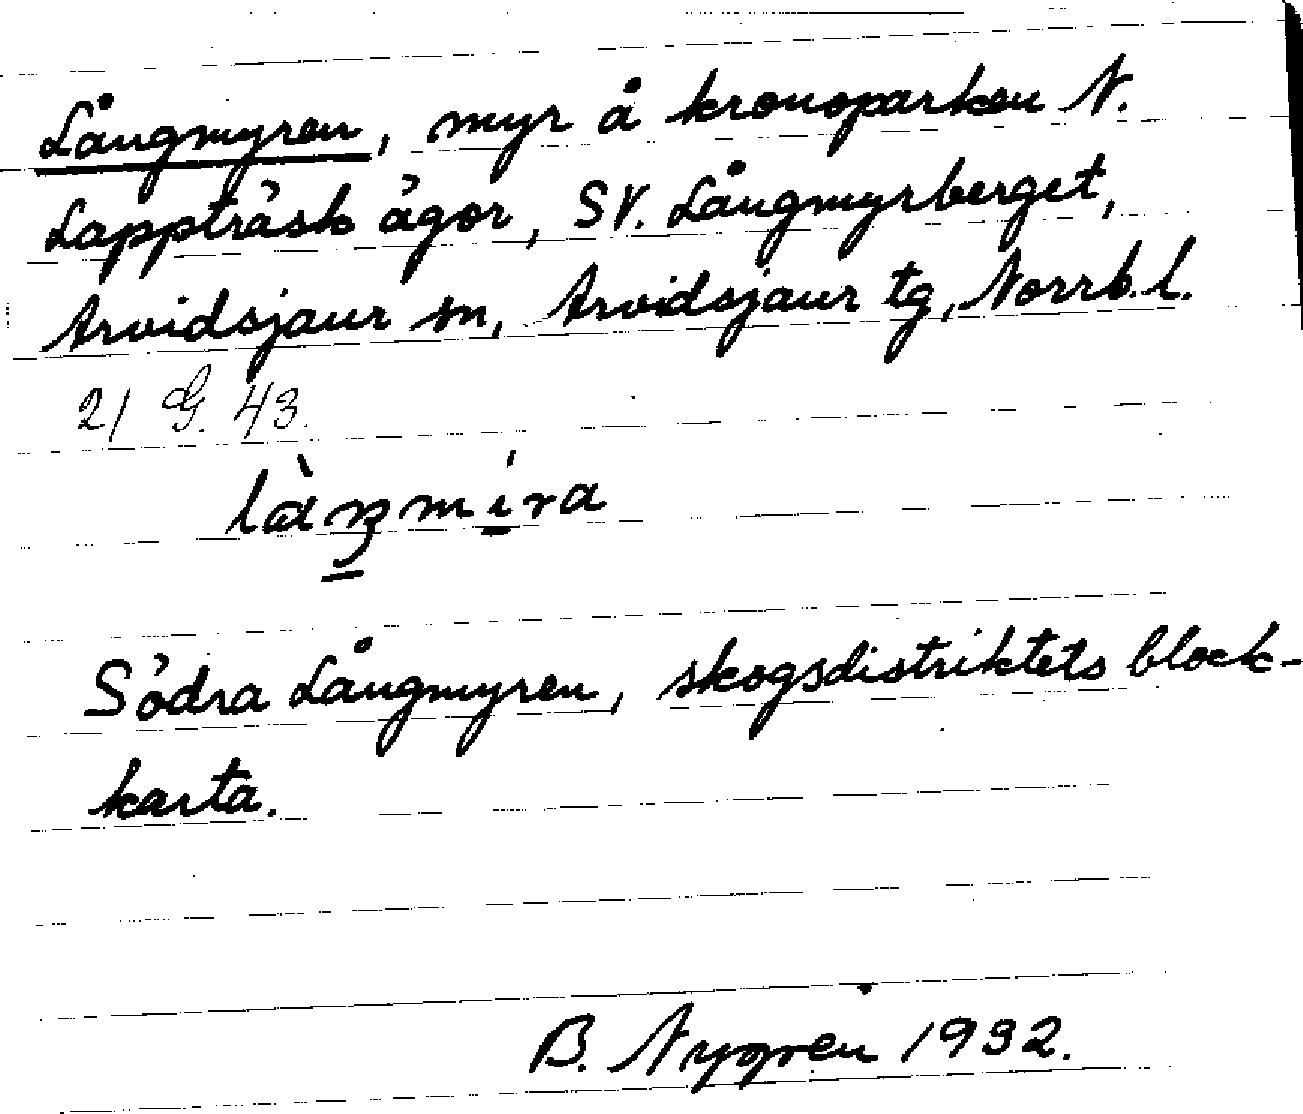 Långmyren, myr å kronoparken N.
Lappträsk ägor, SV. Långmyrberget,
Arvidsjaur sn, Arvidsjaur tg, Norrb. l.
21 G. 43.
Södra Långmyren, skogsdistriktets block-
karta.
B. Nygren 1932.